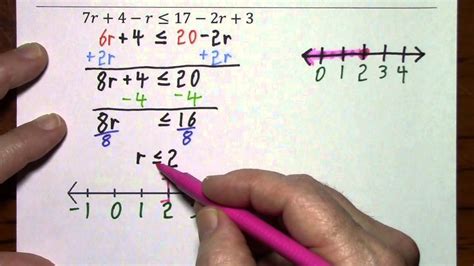 7r + 4 − r ≤ 17 − 2r + 3
6r+4 ≤ 20-2r
+2r +2r
8r+4 ≤ 20
-4 -4
8r ≤ 16
8 8
r ≤ 2
-1 0 1 2
0 1 2 3 4